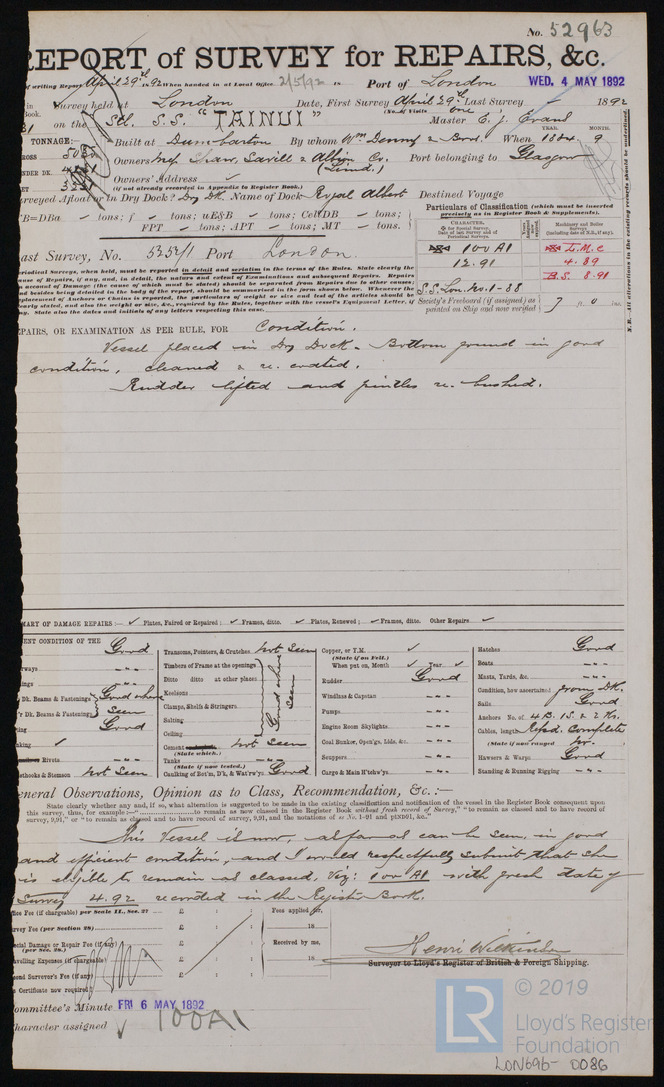 No. 52963
REPORT of SURVEY for REPAIRS, &c.
of writing Report April 29th 92 When handed in at Local Office 2/5/92 Port of London WED. 4 MAY 1892
Survey held at London Date, First Survey April 29th Last Survey 1892
(No. of Visits one)
on the Stl. S.S. "TAINUI" Master E. J. Evans
TONNAGE: Built at Dumbarton By whom Wm Denny & Bros. When 1884. 9
YEAR. MONTH.
GROSS Owners Messrs Shaw, Savill & Albion Co. Port belonging to Glasgow
(Limd.)
UNDER DK. Owners' Address
(if not already recorded in Appendix to Register Book.)
Surveyed Afloat or in Dry Dock? Dry Dk. Name of Dock Royal Albert Destined Voyage
CB=DBa – tons; f – tons; uE&B – tons; CellDB – tons;
FPT – tons; APT – tons; MT – tons.
Particulars of Classification (which must be inserted precisely as in Register Book & Supplements).
CHARACTER. for Special Survey. Date of last Survey and of Periodical Surveys.
Machinery and Boiler Surveys (including date of N.B., if any).
100 A1 L.M.C
12.91 4.89
B.S. 8.91
S.S. Lon. No. 1-88
Last Survey, No. 53541 Port London
Society's Freeboard (if assigned) as painted on Ship and now verified 7 0 ins.
Periodical Surveys, when held, must be reported in detail and seriatim in the terms of the Rules. State clearly the
cause of Repairs, if any, and, in detail, the nature and extent of Examinations and subsequent Repairs. Repairs
on account of Damage (the cause of which must be stated) should be separated from Repairs due to other causes;
and besides being detailed in the body of the report, should be summarised in the form shown below. Whenever the
Replacement of Anchors or Chains is reported, the particulars of weight or size and test of the articles should be
clearly stated, and also the weight or size, &c., required by the Rules, together with the vessel's Equipmental Letter, if
any. State also the dates and initials of any letters respecting this case.
N.B.—All alterations in the existing records should be underlined.
REPAIRS, OR EXAMINATION AS PER RULE, FOR Condition.
Vessel placed in Dry Dock. Bottom found in good
condition, cleaned & re. coated.
Rudder lifted and pintles re. bushed.
SUMMARY OF DAMAGE REPAIRS:— Plates, Faired or Repaired; Frames, ditto. Plates, Renewed; Frames, ditto. Other Repairs.
PRESENT CONDITION OF THE
Good
Dk. Beams & Fastenings Good where
Dk. Beams & Fastenings seen
Good
Rivets
Breasthooks & Stemson Not Seen
Transoms, Pointers, & Crutches. Not Seen
Timbers of Frame at the openings
Ditto ditto at other places
Keelsons
Clamps, Shelfs & Stringers
Salting
Ceiling
Good where seen
Cement Not Seen
(State which.)
Tanks
(State if now tested.)
Caulking of Bot'm, D'k, & Wat'rw'ys Good
Copper, or Y.M.
(State if on Felt.)
When put on, Month Year
Rudder Good
Windlass & Capstan
Pumps
Engine Room Skylights
Coal Bunker, Open'gs, Lids, &c.
Scuppers
Cargo & Main H'tchw'ys
Hatches Good
Boats
Masts, Yards, &c.
Condition, how ascertained from Dk.
Sails Good
Anchors No. of 4 B. 1 S. & 2 Ks.
Cables, length Repd. Complete
(State if now ranged) No.
Hawsers & Warps Good
Standing & Running Rigging
General Observations, Opinion as to Class, Recommendation, &c.:—
State clearly whether any, and if so, what alteration is suggested to be made in the existing classification and notification of the vessel in the Register Book consequent upon
this survey, thus, for example:—"..............to remain as now classed in the Register Book without fresh record of Survey," "to remain as classed and to have record of
survey, 9,91," or "to remain as classed and to have record of survey, 9,91, and the notations of ss No. 1–91 and ptND91, &c."
This Vessel is now, as far as can be seen, in good
and efficient condition, and I would respectfully submit that she
is eligible to remain as classed, Viz: 100 A1 with fresh date of
Survey 4.92 recorded in the Register Book.
Office Fee (if chargeable) per Scale II., Sec. 27 £ : : Fees applied for,
Survey Fee (per Section 28) £ : : 18
Special Damage or Repair Fee (if any) (per Sec. 28.) £ : : Received by me,
Travelling Expenses (if chargeable) £ : : 18
Second Surveyor's Fee (if any) £ : :
Is Certificate now required
Henri Wilkinson
Surveyor to Lloyd's Register of British & Foreign Shipping.
Committee's Minute FRI 6 MAY 1892
Character assigned 100A1
LR
© 2019
Lloyd's Register
Foundation
LON696-0086